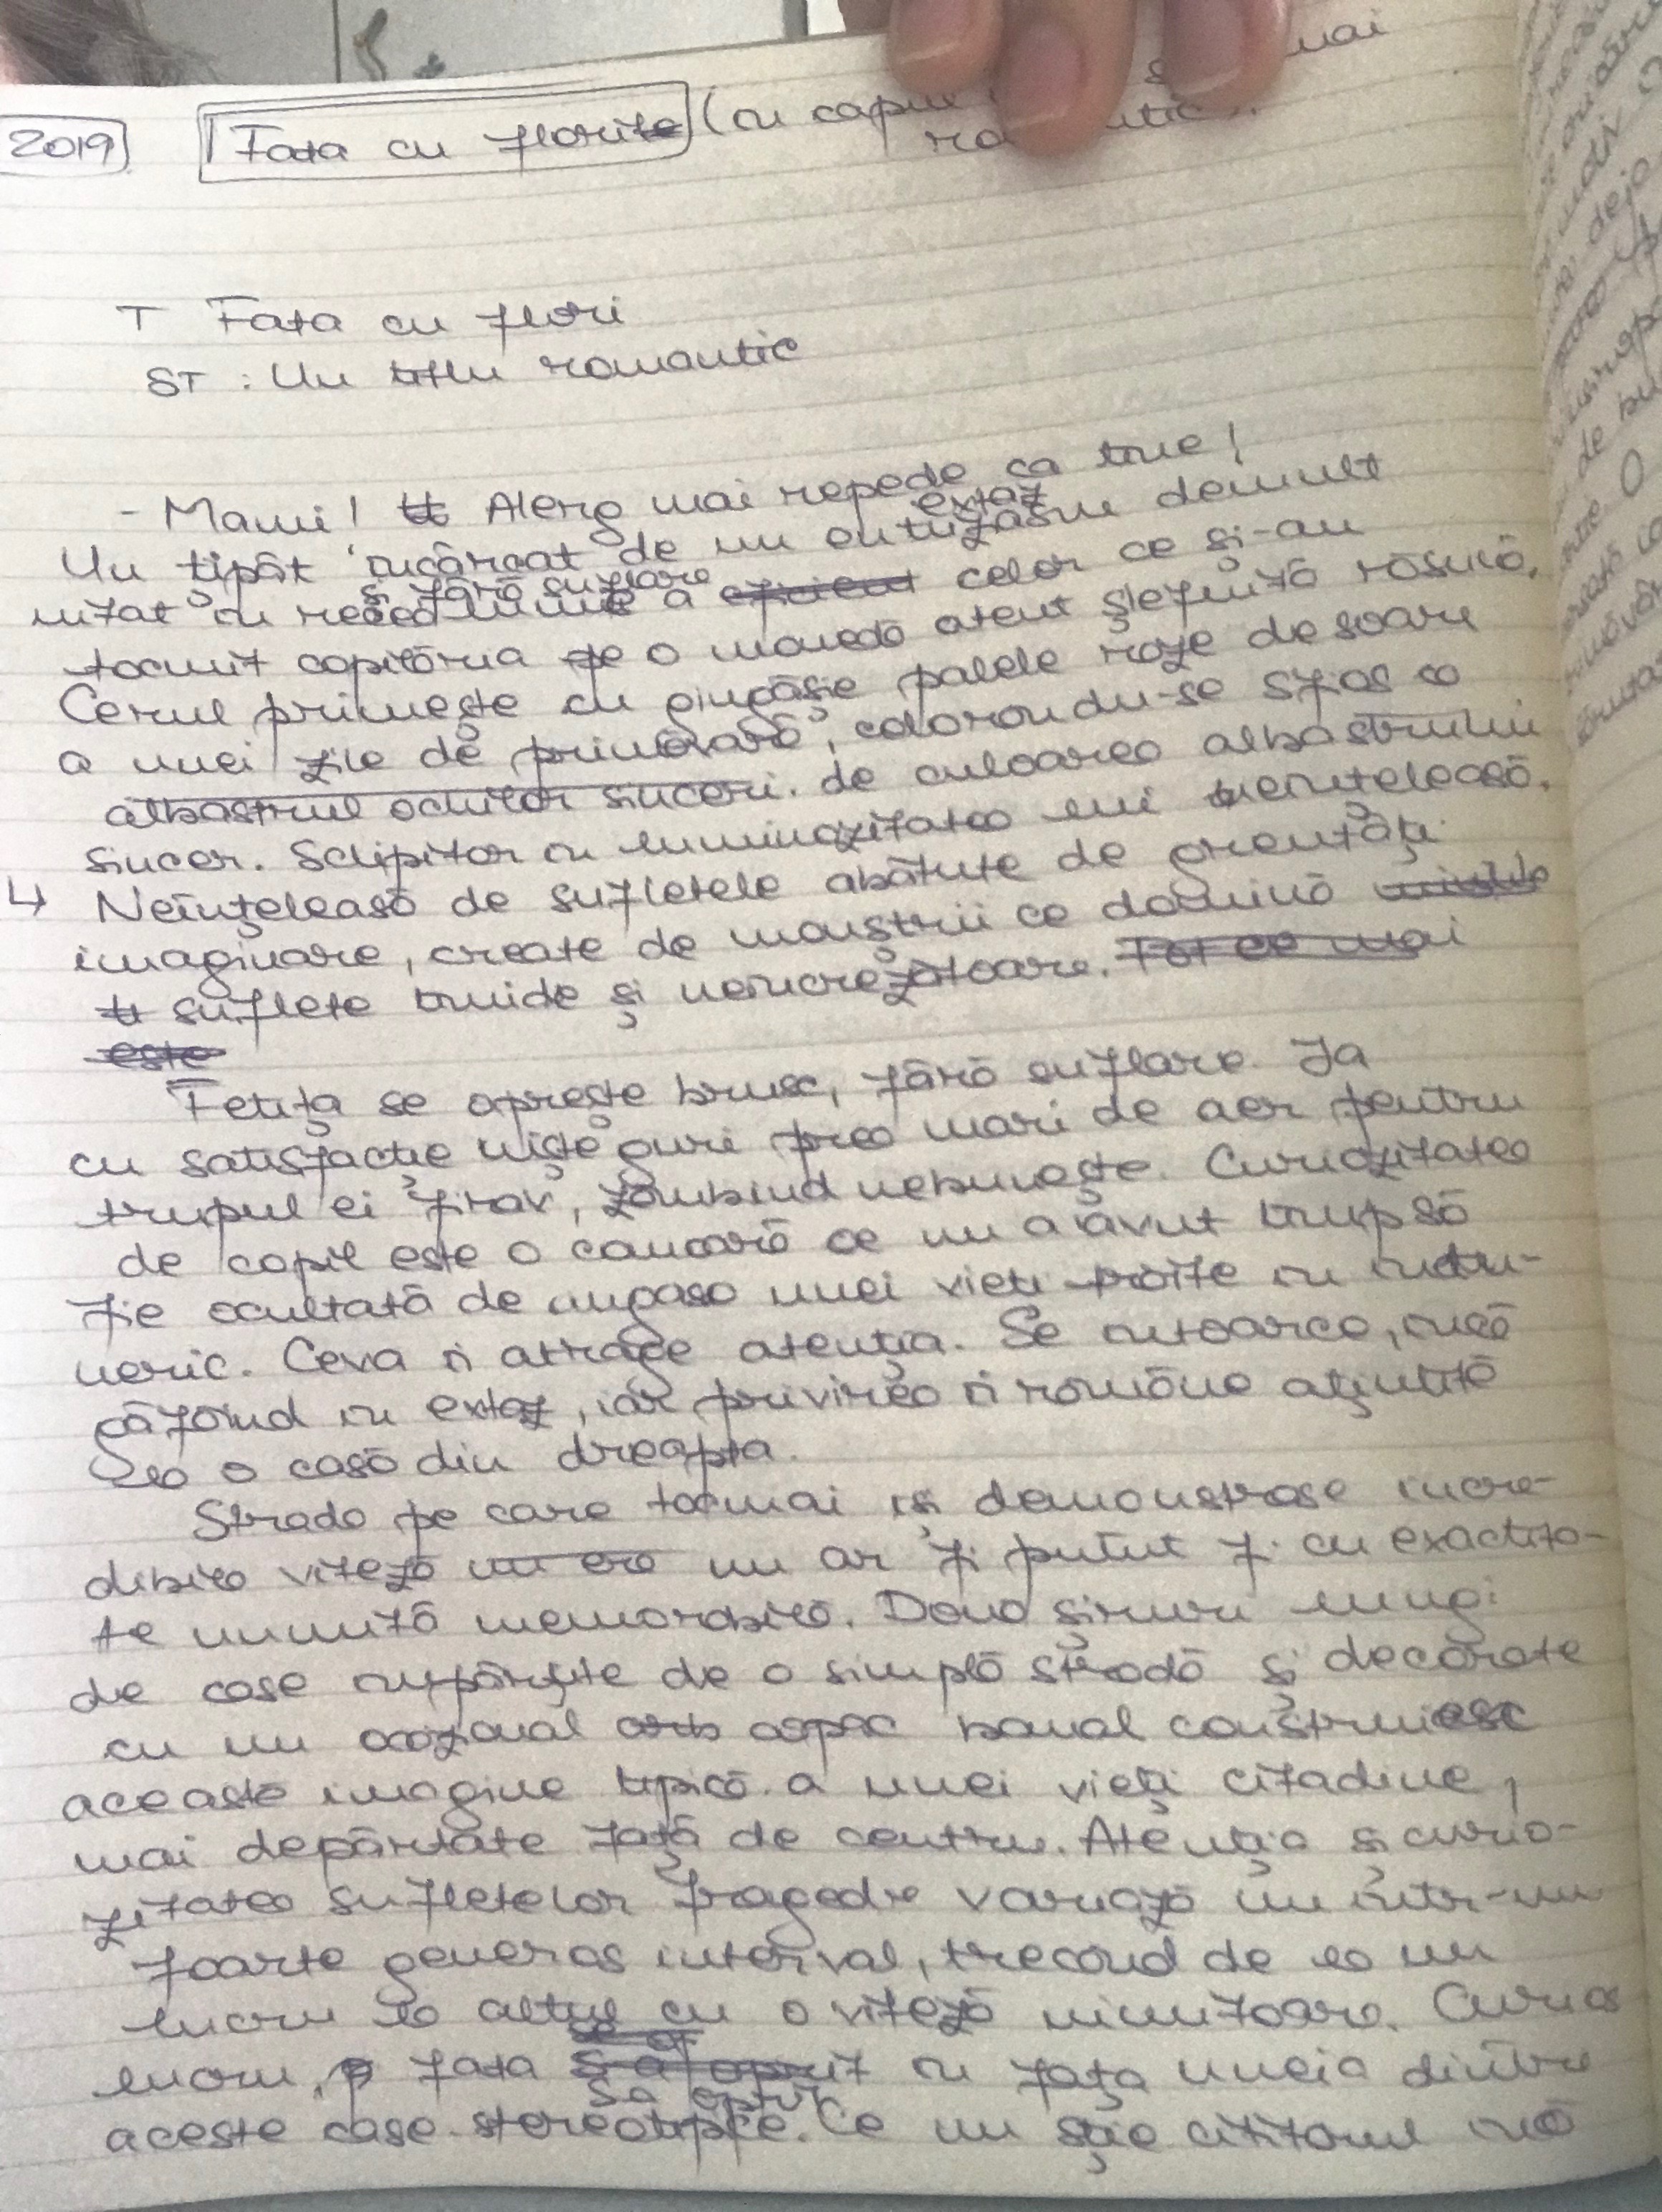 2019 Fata cu florile (cu capul
mai
T Fata cu flori
ST : Un titlu romantic
- Mami! Alerg mai repede ca tine!
extaz
Un țipăt încărcat de un entuziasm demult
și fără suflare
uitat în a eficient celor ce și-au
tocmit copilăria pe o monedă atent șlefuită
Cerul primește cu gingășie palele raze de soare
a unei zile de primăvară, colorându-se sfios ca
albastrul ochilor sinceri. de culoarea albastrului
sincer. Sclipitor în luminozitatea lui neînțeleasă.
Neînțeleasă de sufletele abătute de greutăți
imaginare, create de monștrii ce domină
suflete timide și neîncrezătoare. Tot ce mai
este
Fetița se oprește brusc, fără suflare. Ia
cu satisfacție niște guri prea mari de aer pentru
trupul ei firav, zâmbind nebunește. Curiozitatea
de copil este o comoară ce nu a avut timp să
fie ocultată de angoasa unei vieți trăite în întu-
neric. Ceva îi atrage atenția. Se întoarce, încă
gâfâind în extaz, iar privirea îi rămâne ațintită
la o casă din dreapta.
Strada pe care tocmai își demonstrase incre-
dibila viteză nu era nu ar fi putut fi cu exactita-
te numită memorabilă. Două șiruri lungi
de case împărțite de o simplă stradă și decorate
cu un ocazional copac banal construiesc
această imagine tipică a unei vieți citadine,
mai depărtate față de centru. Atenția și curio-
zitatea sufletelor fragede variază un într-un
foarte generos interval, trecând de la un
lucru la altul cu o viteză uimitoare. Curios
lucru, fata s-a oprit în fața uneia dintre
s-a oprit
aceste case stereotipice. Ce nu știe cititorul încă